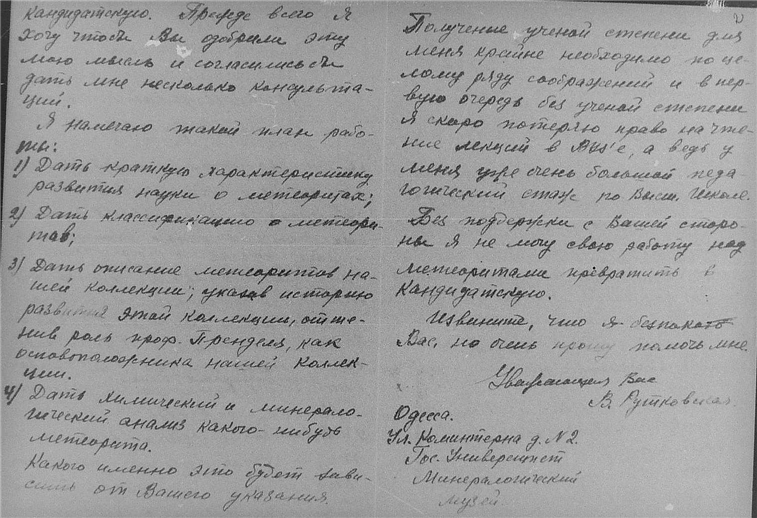 кандидатскую. Прежде всего я
хочу чтобы Вы одобрили эту
мою мысль и согласились бы
дать мне несколько консульта-
ций.
Я намечаю такой план рабо-
ты:
1) Дать краткую характеристику
развития науки о метеоритах;
2) Дать классификацию о метеори-
тов;
3) Дать описание метеоритов на-
шей коллекции; указав историю
развития этой коллекции, отте-
нив роль проф. Пренделя, как
основоположника нашей коллек-
ции.
4) Дать химический и минерало-
гический анализ какого-нибудь
метеорита.
Какого именно это будет зави-
сить от Вашего указания.
Получение ученой степени для
меня крайне необходимо по це-
лому ряду соображений и в пер-
вую очередь без ученой степени
я скоро потеряю право на чте-
ние лекций в ВУЗ'е, а ведь у
меня уже очень большой педа-
гогический стаж по Высш. Школе.
Без поддержки с Вашей сторо-
ны я не могу свою работу над
метеоритами превратить в
кандидатскую.
Извините, что я беспокою
Вас, но очень прошу помочь мне.
Уважающая Вас
В. Рутковская
Одесса.
Ул. Коминтерна д. N 2.
Гос. Университет
Минералогический
музей